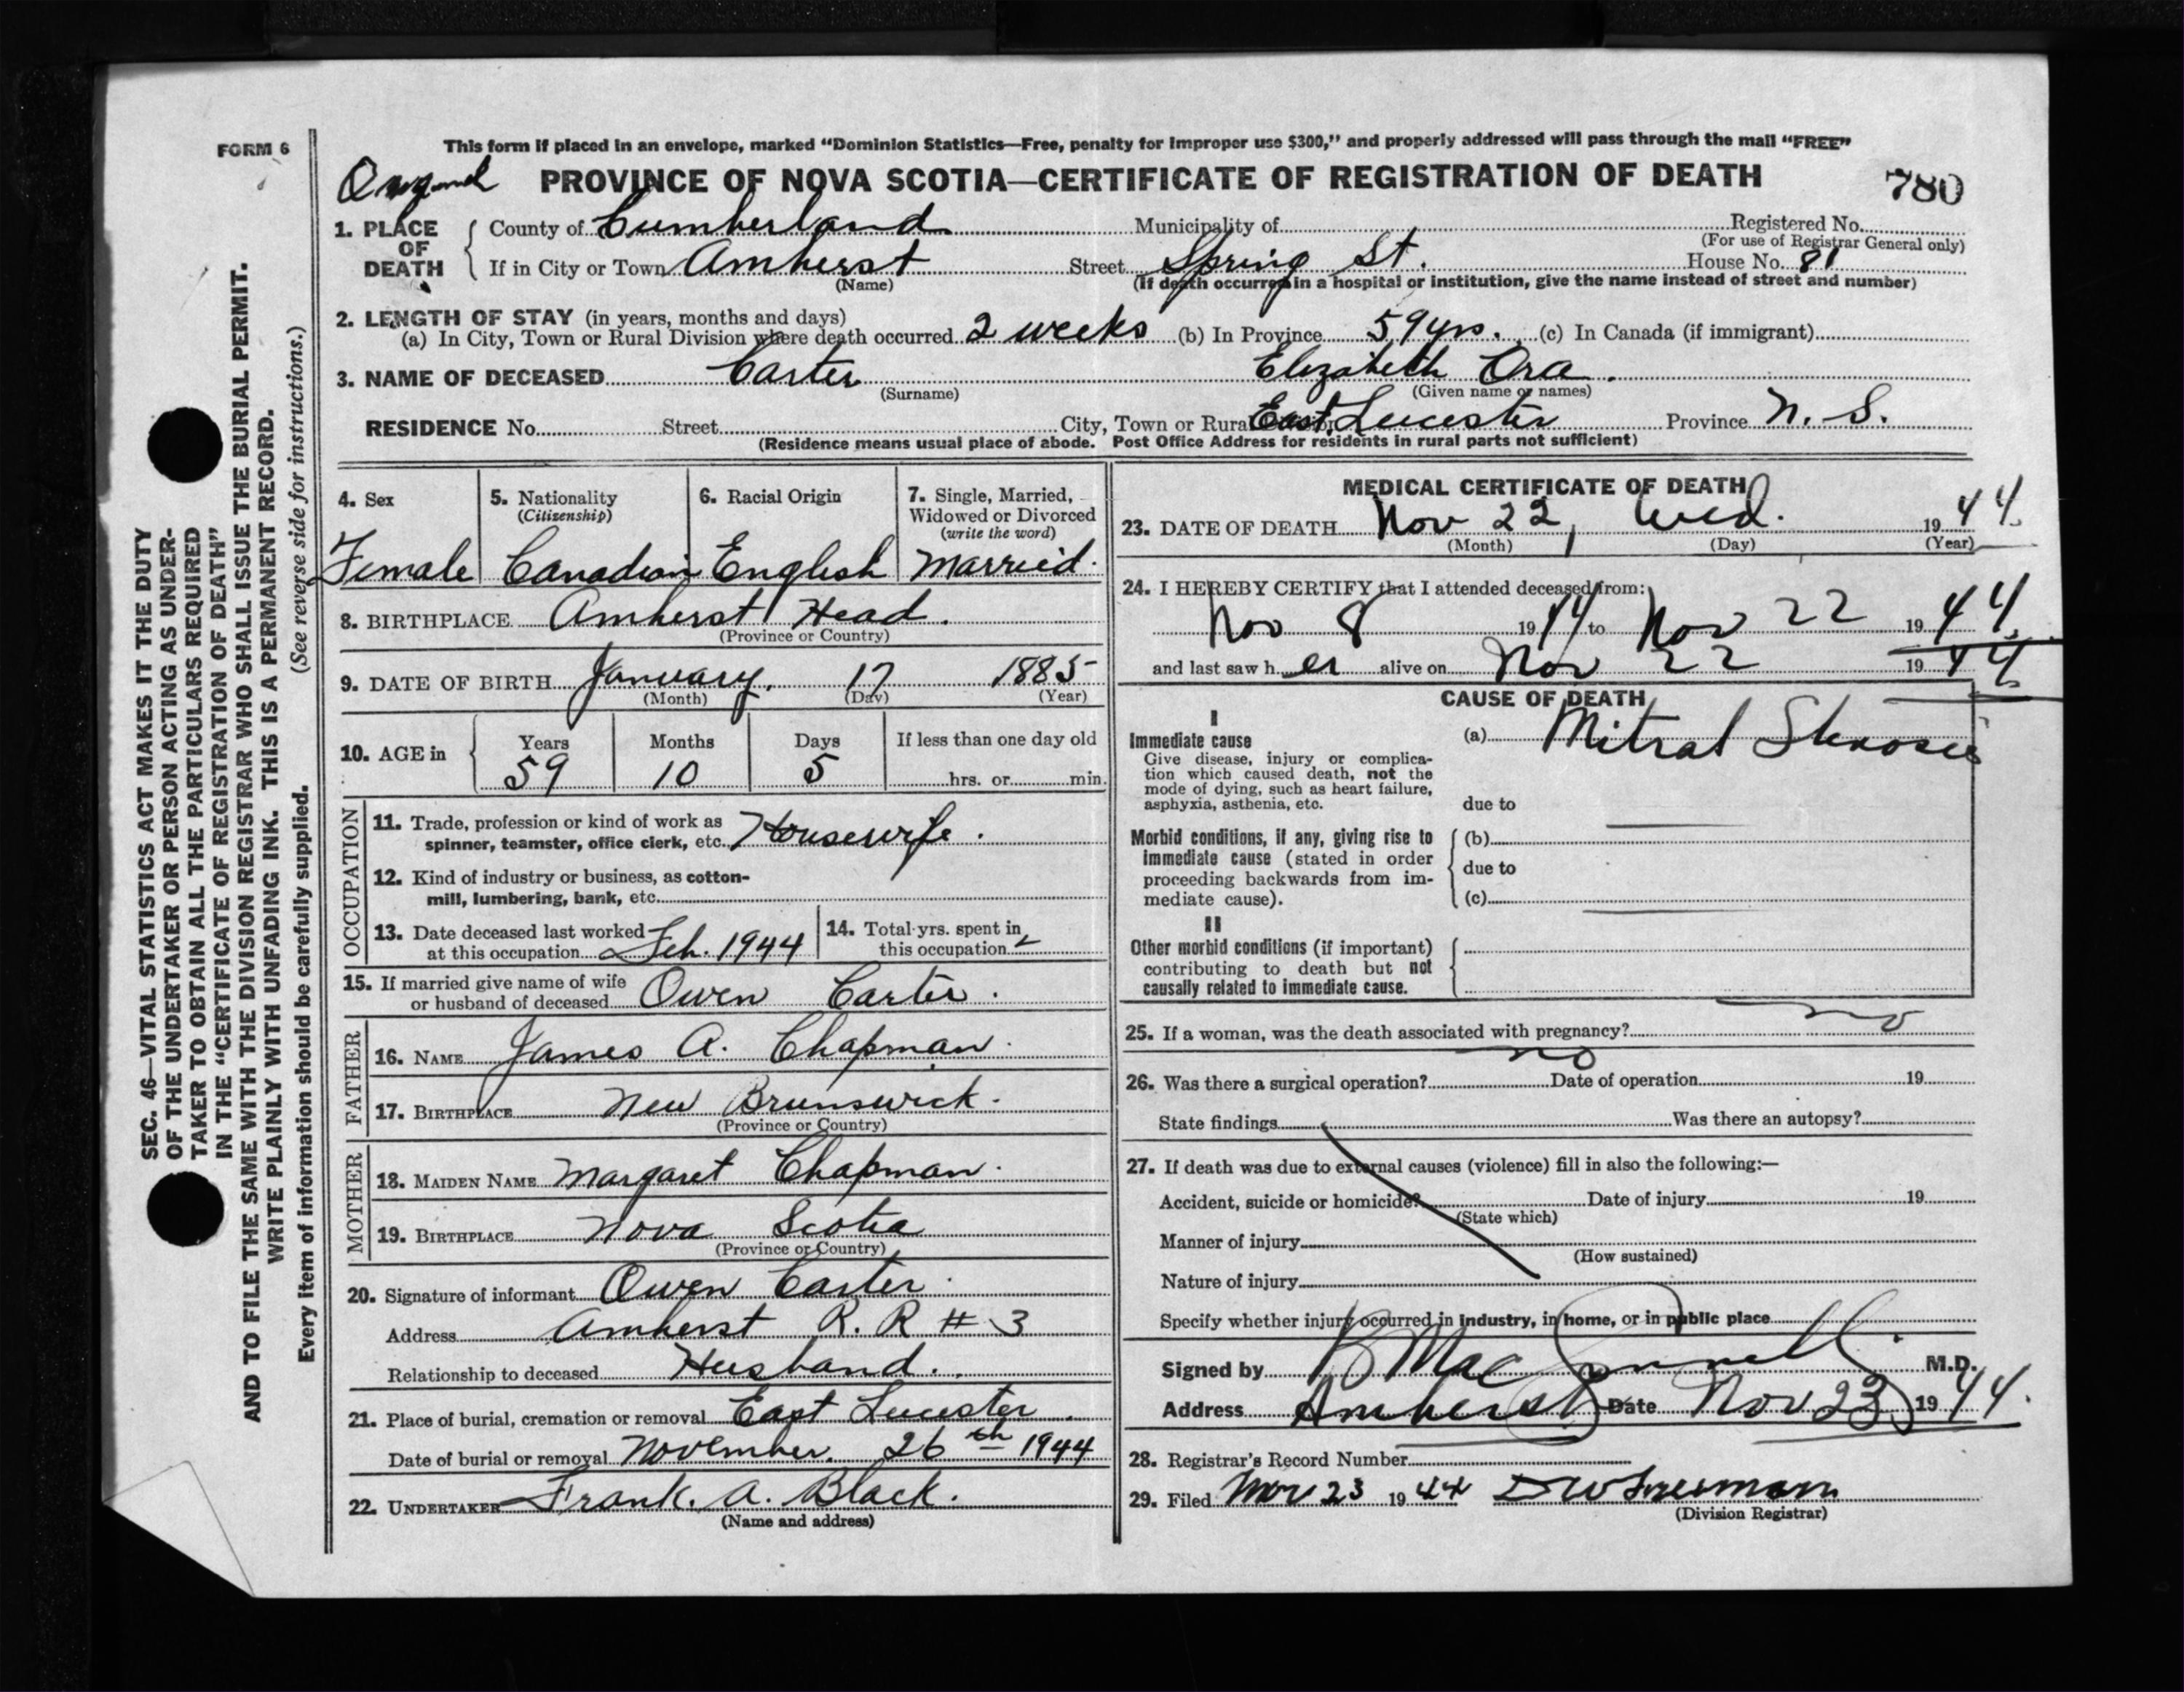 FORM 6
This form if placed in an envelope, marked “Dominion Statistics—Free, penalty for improper use $300,” and properly addressed will pass through the mail “FREE”
PROVINCE OF NOVA SCOTIA—CERTIFICATE OF REGISTRATION OF DEATH
780
1. PLACE OF DEATH
County of Cumberland Municipality of Registered No.
(For use of Registrar General only)
If in City or Town Amherst Street Spring St. House No. 81
(Name) (If death occurred in a hospital or institution, give the name instead of street and number)
2. LENGTH OF STAY (in years, months and days)
(a) In City, Town or Rural Division where death occurred 2 weeks (b) In Province 59 yrs. (c) In Canada (if immigrant)
3. NAME OF DECEASED Carter Elizabeth Ora.
(Surname) (Given name or names)
RESIDENCE No. Street City, Town or Rural East Leicester Province N. S.
(Residence means usual place of abode. Post Office Address for residents in rural parts not sufficient)
SEC. 46—VITAL STATISTICS ACT MAKES IT THE DUTY
OF THE UNDERTAKER OR PERSON ACTING AS UNDER-
TAKER TO OBTAIN ALL THE PARTICULARS REQUIRED
IN THE “CERTIFICATE OF REGISTRATION OF DEATH”
AND TO FILE THE SAME WITH THE DIVISION REGISTRAR WHO SHALL ISSUE THE BURIAL PERMIT.
WRITE PLAINLY WITH UNFADING INK. THIS IS A PERMANENT RECORD.
Every item of information should be carefully supplied. (See reverse side for instructions.)
4. Sex 5. Nationality 6. Racial Origin 7. Single, Married,
(Citizenship) Widowed or Divorced
(write the word)
Female Canadian English Married.
8. BIRTHPLACE Amherst Head.
(Province or Country)
9. DATE OF BIRTH January 17 1885
(Month) (Day) (Year)
10. AGE in Years Months Days If less than one day old
59 10 5 hrs. or min.
OCCUPATION
11. Trade, profession or kind of work as
spinner, teamster, office clerk, etc. Housewife.
12. Kind of industry or business, as cotton-
mill, lumbering, bank, etc.
13. Date deceased last worked
at this occupation Feb. 1944
14. Total yrs. spent in
this occupation
15. If married give name of wife
or husband of deceased Owen Carter.
FATHER
16. NAME James A. Chapman.
17. BIRTHPLACE New Brunswick.
(Province or Country)
MOTHER
18. MAIDEN NAME Margaret Chapman.
19. BIRTHPLACE Nova Scotia
(Province or Country)
20. Signature of informant Owen Carter.
Address Amherst R. R # 3
Relationship to deceased Husband.
21. Place of burial, cremation or removal East Leicester.
Date of burial or removal November. 26th 1944
22. UNDERTAKER Frank. A. Black.
(Name and address)
MEDICAL CERTIFICATE OF DEATH
23. DATE OF DEATH Nov 22, Wed. 1944.
(Month) (Day) (Year)
24. I HEREBY CERTIFY that I attended deceased from:
Nov 8 1944 to Nov 22 1944
and last saw her alive on Nov 22 1944
CAUSE OF DEATH
I
Immediate cause
Give disease, injury or complica-
tion which caused death, not the
mode of dying, such as heart failure,
asphyxia, asthenia, etc.
(a) Mitral Stenosis
due to
Morbid conditions, if any, giving rise to
immediate cause (stated in order
proceeding backwards from im-
mediate cause).
(b)
due to
(c)
II
Other morbid conditions (if important)
contributing to death but not
causally related to immediate cause.
25. If a woman, was the death associated with pregnancy? no
26. Was there a surgical operation? no Date of operation 19
State findings Was there an autopsy?
27. If death was due to external causes (violence) fill in also the following:—
Accident, suicide or homicide? Date of injury 19
(State which)
Manner of injury
(How sustained)
Nature of injury
Specify whether injury occurred in industry, in home, or in public place
Signed by M.D.
Address Amherst Date Nov 23, 1944.
28. Registrar's Record Number
29. Filed Nov 23 1944
(Division Registrar)